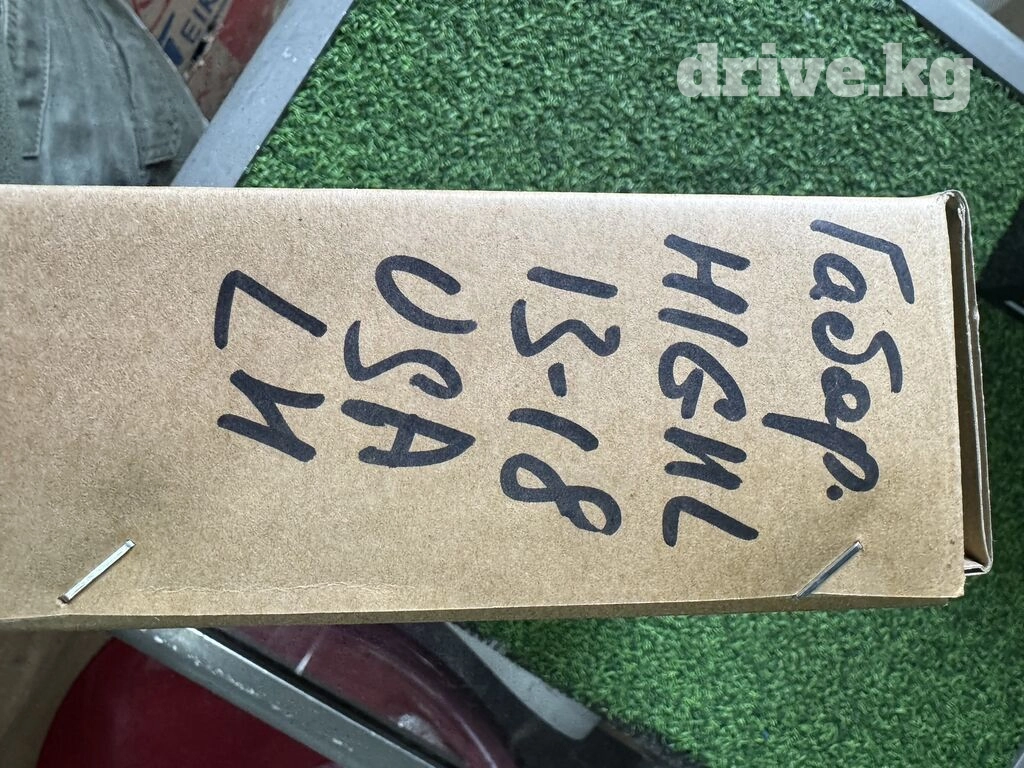 drive.kg
Габор.
HIGHL
13-18
USA
LH